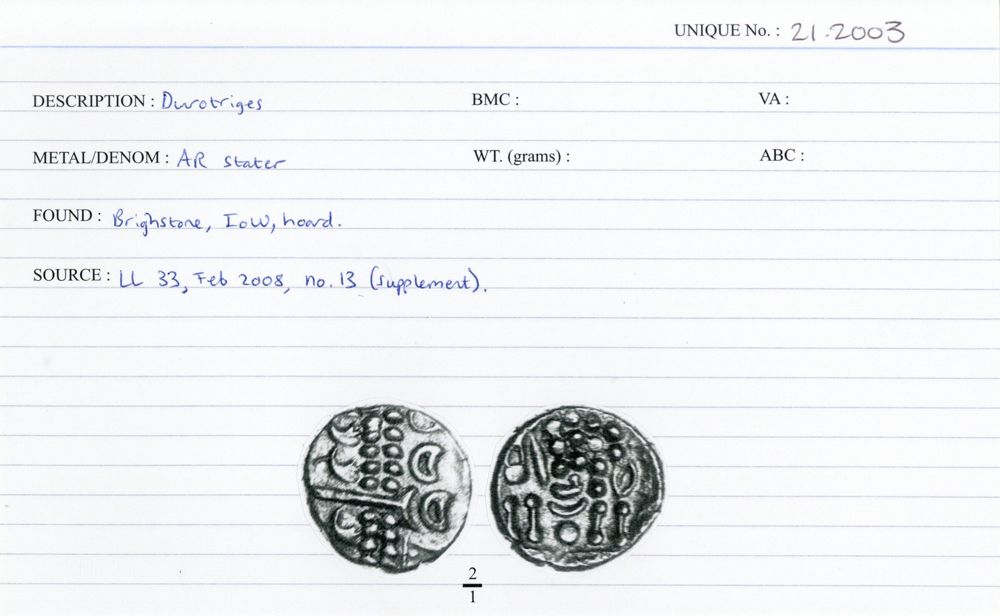 UNIQUE No. : 21.2003
DESCRIPTION : Durotriges BMC : VA :
METAL/DENOM : AR stater WT. (grams) : ABC :
FOUND : Brighstone, IoW, hoard.
SOURCE : LL 33, Feb 2008, no. 13 (supplement).
2
1